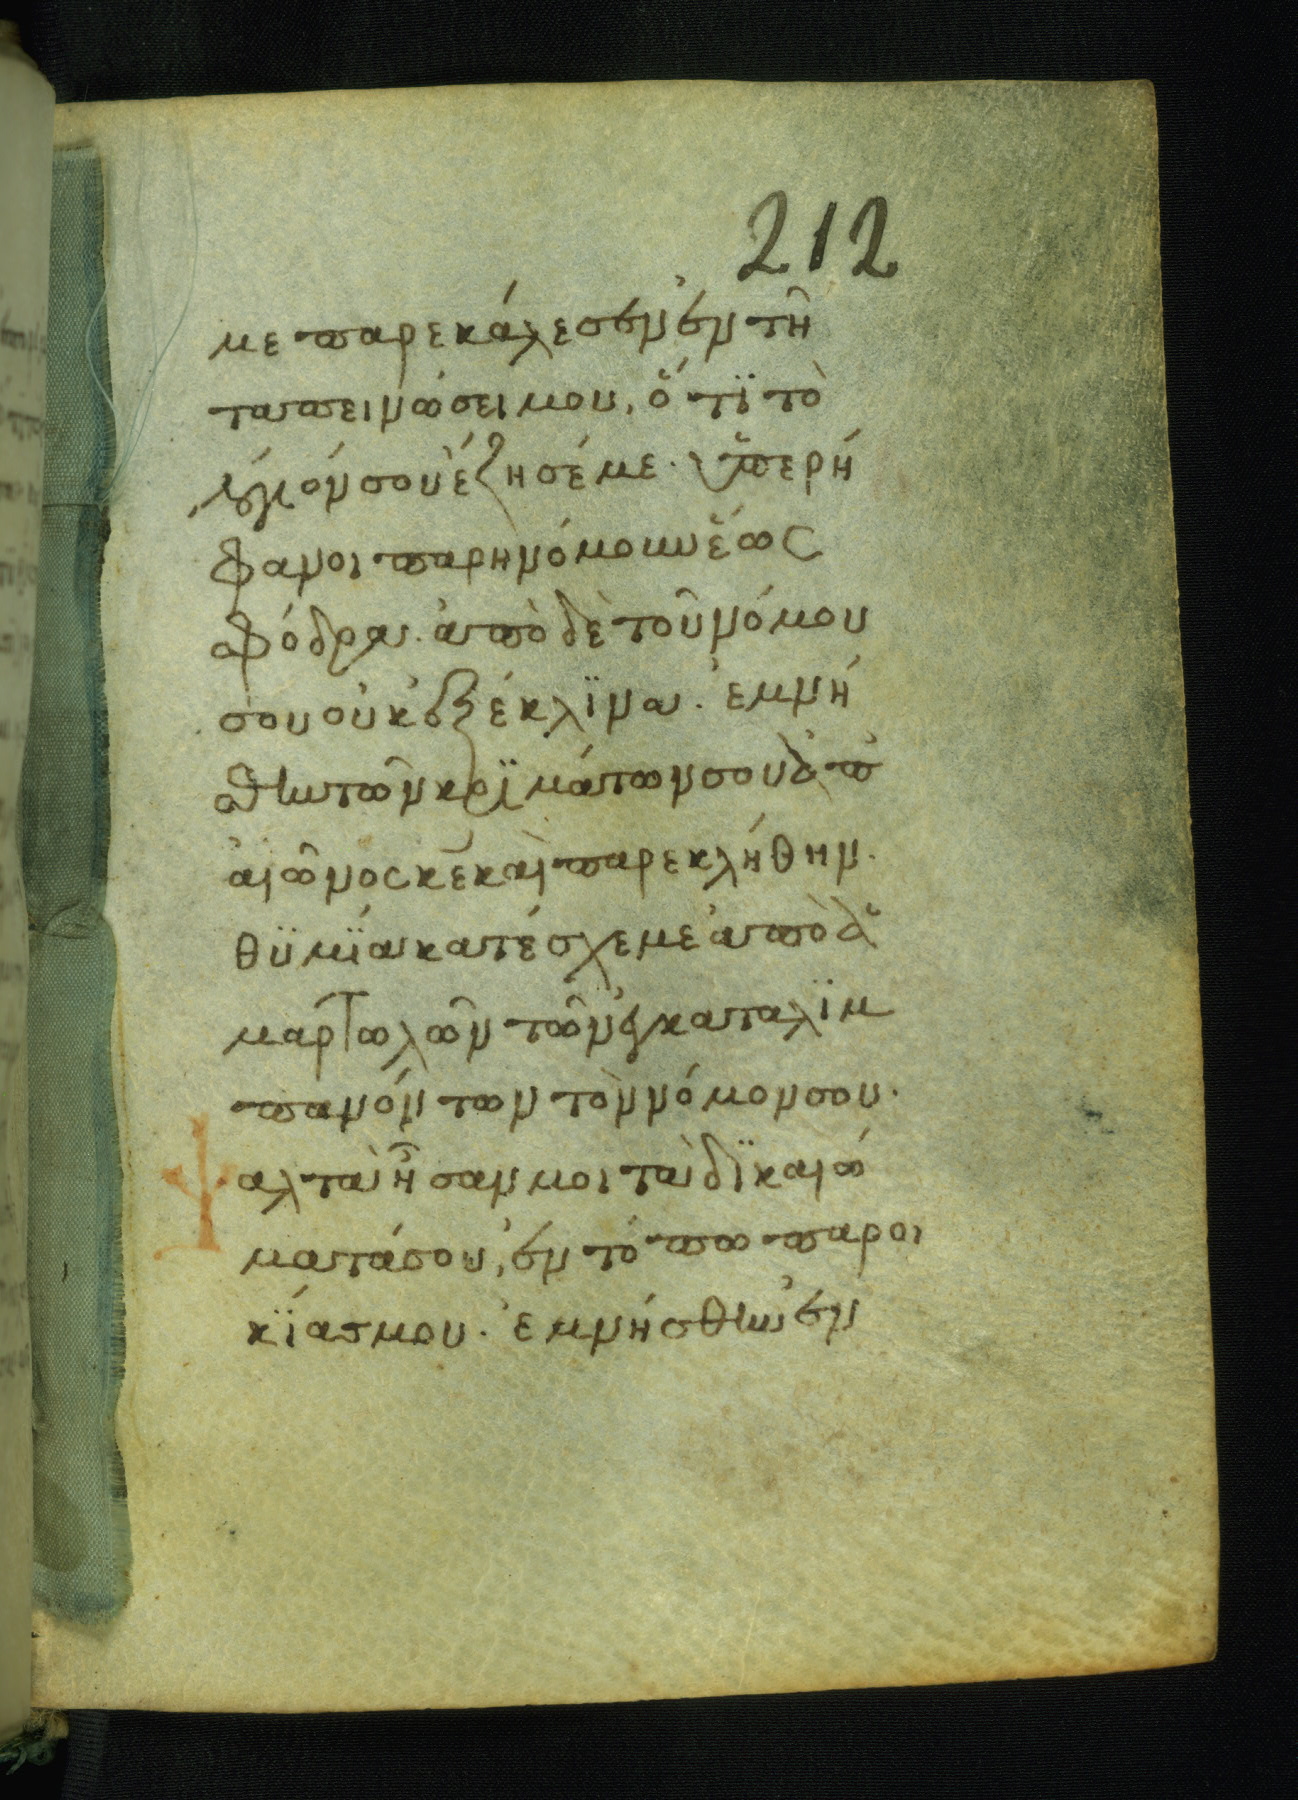 212
με παρεκάλεσεν ἐν τῆ
ταπεινώσει μου, ὅ τϊ τὸ
λόγιόν σου ἔζησέ με. ὑπερή
φανοι παρηνόμουν ἕως
σφόδρα. ἀπὸ δὲ τοῦ νόμου
σου οὐκ ἐξέκλϊνα. ἐμνή
σθην τῶν κρϊμάτων σου ἀπ
αἰῶνος κε καὶ παρεκλήθην.
ἀθϋμϊα κατέσχε με ἀπὸ ἁ
μαρτωλῶν τῶν ἐγκαταλϊμ
πανόν των τὸν νόμον σου.
Ψαλτὰ ἦσαν μοι τὰ δϊκαιώ
ματά σου, ἐν τόπω παροι
κϊας μου. ἐμνήσθην ἐν